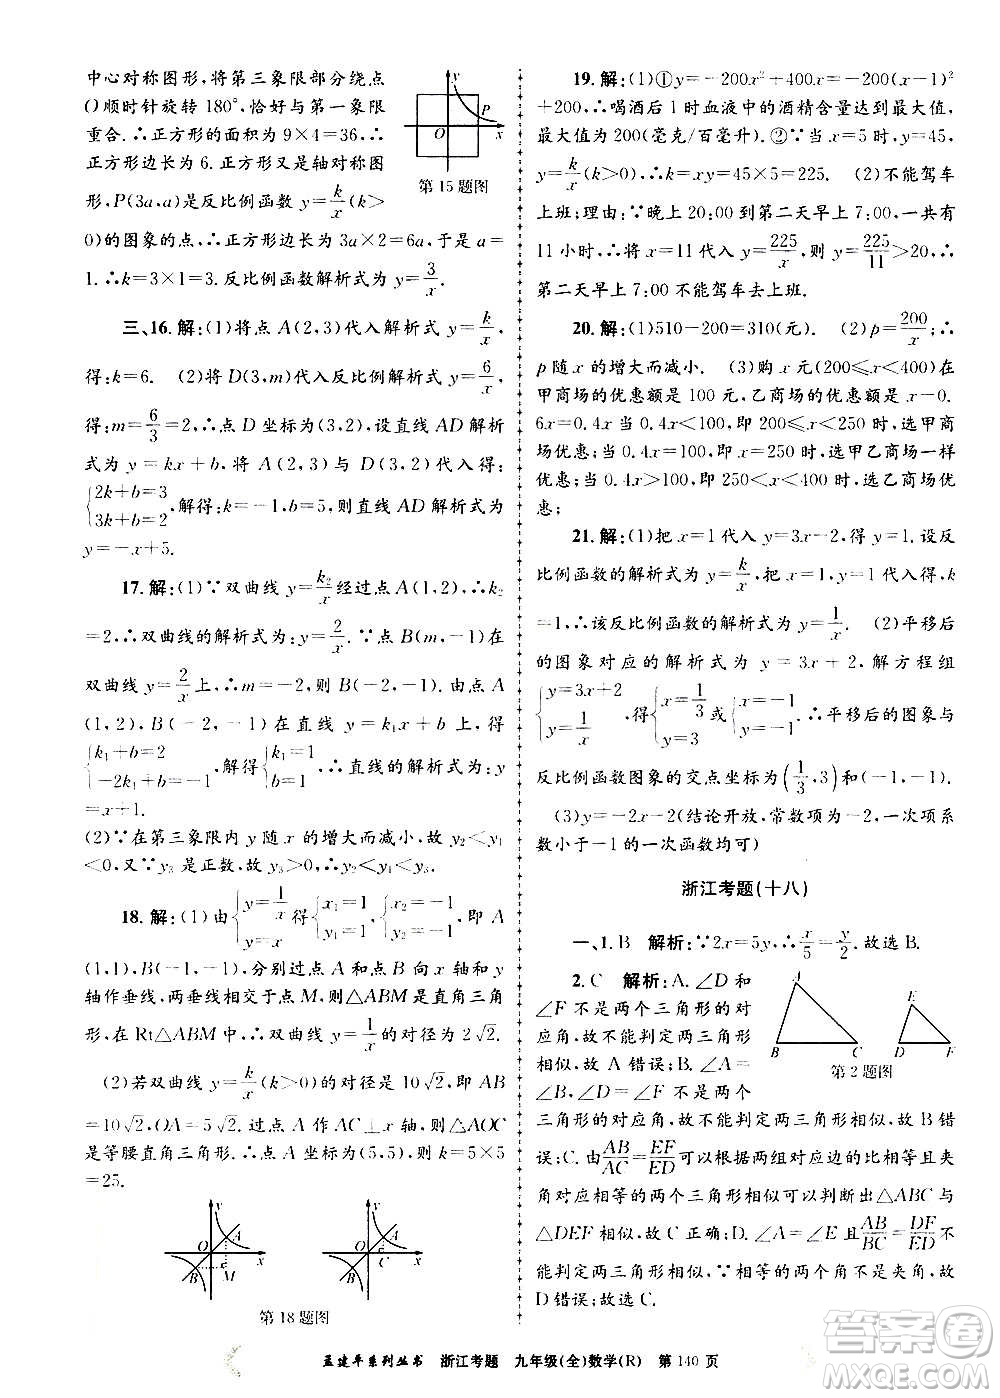 中心对称图形,将第三象限部分绕点
O顺时针旋转180°,恰好与第一象限
重合.∴正方形的面积为9×4=36,∴
正方形边长为6.正方形又是轴对称图
形,P(3a,a)是反比例函数y=k/x(k>
0)的图象的点,∴正方形边长为3a×2=6a,于是a=
1.∴k=3×1=3.反比例函数解析式为y=3/x.
y
P
O
x
第15题图
三、16.解:(1)将点A(2,3)代入解析式y=k/x,
得:k=6. (2)将D(3,m)代入反比例解析式y=6/x,
得:m=6/3=2,∴点D坐标为(3,2),设直线AD解析
式为y=kx+b,将A(2,3)与D(3,2)代入得:
{2k+b=3
3k+b=2,解得:k=-1,b=5.则直线AD解析式为
y=-x+5.
17.解:(1)∵双曲线y=k₂/x经过点A(1,2),∴k₂
=2,∴双曲线的解析式为:y=2/x.∵点B(m,-1)在
双曲线y=2/x上,∴m=-2,则B(-2,-1).由点A
(1,2),B(-2,-1)在直线y=k₁x+b上,得
{k₁+b=2
-2k₁+b=-1,解得{k₁=1
b=1,∴直线的解析式为:y
=x+1.
(2)∵在第三象限内y随x的增大而减小,故y₂<y₁
<0,又∵y₃是正数,故y₃>0,∴y₂<y₁<y₃.
18.解:(1)由{y=1/x
y=x得{x₁=1
y₁=1,{x₂=-1
y₂=-1,即A
(1,1),B(-1,-1),分别过点A、点B向x轴和y
轴作垂线,两垂线相交于点M,则△ABM是直角三角
形,在Rt△ABM中,∴双曲线y=1/x的对径为2√2.
(2)若双曲线y=k/x(k>0)的对径是10√2,即AB=
10√2,OA=5√2.过点A作AC⊥x轴,则△AOC
是等腰直角三角形.∴点A坐标为(5,5),则k=5×5
=25.
y
A
O
x
B
M
y
A
O
C
x
B
第18题图
19.解:(1)①y=-200x²+400x=-200(x-1)²
+200,∴喝酒后1时血液中的酒精含量达到最大值,
最大值为200(毫克/百毫升).②∵当x=5时,y=45,
y=k/x(k>0),∴k=xy=45×5=225. (2)不能驾车
上班;理由:∵晚上20:00到第二天早上7:00,一共有
11小时,∴将x=11代入y=225/x,则y=225/11>20,∴
第二天早上7:00不能驾车去上班.
20.解:(1)510-200=310(元). (2)p=200/x;∴
p随x的增大而减小. (3)购x元(200≤x<400)在
甲商场的优惠额是100元,乙商场的优惠额是x-0.
6x=0.4x当0.4x<100,即200≤x<250时,选甲商
场优惠;当0.4x=100,即x=250时,选甲乙商场一样
优惠;当0.4x>100,即250<x<400时,选乙商场优
惠;
21.解:(1)把x=1代入y=3x-2,得y=1,设反
比例函数的解析式为y=k/x,把x=1,y=1代入得,k
=1,∴该反比例函数的解析式为y=1/x. (2)平移后
的图象对应的解析式为y=3x+2,解方程组
{y=3x+2
y=1/x,得{x=1/3
y=3或{x=-1
y=-1.∴平移后的图象与
反比例函数图象的交点坐标为(1/3,3)和(-1,-1).
(3)y=-2x-2(结论开放,常数项为-2,一次项系
数小于-1的一次函数均可)
浙江考题(十八)
一、1.B 解析:∵2x=5y,∴x/5=y/2.故选B.
2.C 解析:A.∠D和
∠F不是两个三角形的对
应角,故不能判定两三角形
相似,故A错误;B.∠A=
∠B,∠D=∠F不是两个
三角形的对应角,故不能判定两三角形相似,故B错
误;C.由AB/AC=EF/ED可以根据两组对应边的比相等且
夹角对应相等的两个三角形相似可以判断出△ABC
与△DEF相似,故C正确;D.∠A=∠E且AB/BC=DF/ED不
能判定两三角形相似,∵相等的两个角不是夹角,故
D错误;故选C.
A
B
C
E
D
F
第2题图
孟建平系列丛书 浙江考题 九年级(全)数学(R) 第140页
作业精灵